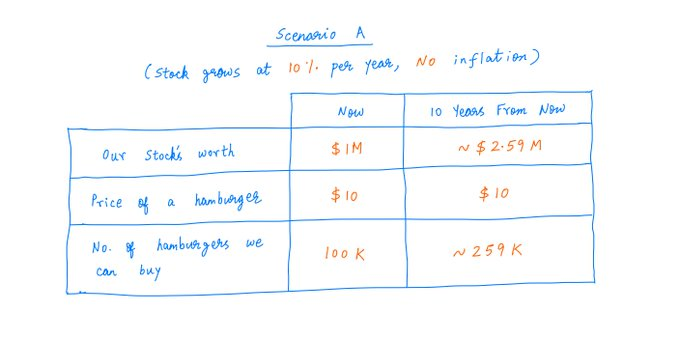 Scenario A
(Stock grows at 10% per year, No inflation)
Now 10 Years From Now
Our Stock's worth $1M ~ $2.59M
Price of a hamburger $10 $10
No. of hamburgers we
can buy 100K ~259K